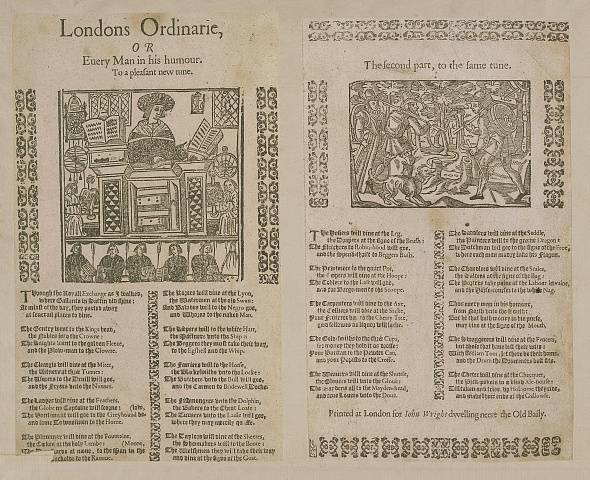 Londons Ordinarie,
OR
Euery Man in his humour.
To a pleasant new tune.
Through the Royall Exchange as I walked,
where Gallants in Sattin did shine:
At midst of the day, they parted away
at seuerall places to dine.
The Gentry went to the Kings head,
the Nobles vnto the Crowne:
The Knights vnto the golden Fleece,
and the Plow-man to the Clowne.
The Cleargie will dine at the Miter,
the Vintners at the three Tunnes:
The Vsurers to the Deuill will goe,
and the Fryers to the Nunnes.
The Ladyes will dine at the Feathers,
the Globe no Captaine will scorne:
The Huntsmen will goe to the Greyhound
and some Townesmen to the Horne.
The Plummers will dine at the Fountaine,
the Cookes at the holy Lambe:
at noone, to the Man in the
(Moone,
to the Ramme.
The will dine at the Lyon,
the Watermen at the old Swan:
And Bawdes will to the Negro goe,
and Whores to the naked Man.
The Keepers will to the white Hart,
the Marchants vnto the Ship:
The Beggers they must take their way,
to the Egshell and the Whip.
The Farriers will to the Horse,
the Blackesmithes to the Locke:
The Butchers vnto the Bull will goe,
and the Carmen to Bridewell Clocke.
The Fishmongers vnto the Dolphin,
the Bakers to the Cheat Loafe:
The Turners vnto the Ladle will goe,
where they may merrily quaffe.
The Taylors will dine at the Sheeres,
the Shoomakers will to the Boote:
The Welshmen they will take their way
and dine at the signe of the Gote.
The second part, to the same tune.
The Hosiers will dine at the Leg,
the Drapers at the signe of the Brush:
The Fletchers to Robin-hood will goe,
and the Spend-thrift to Beggers Bush.
The Pewterers to the quart Pot,
the Coopers will dine at the Hoope:
The Coblers to the Last will goe,
and the Bargemen to the Scoope.
The Carpenters will dine to the Axe,
the Colliers will dine at the Sacke:
Your Fruterer to the Cherry Tree,
good fellowes no liquor will lacke.
The Gold-smiths to the three Cups,
their money they hold it as drosse:
Your Puritan to the Pewter Can,
and your Papists to the Crosse.
The Weauers will dine at the Shuttle,
the Glouers will vnto the Gloue:
The Maydens all to the Mayden-head,
and true Louers vnto the Doue.
The Sadlers will dine at the Saddle,
the Painters will to the greene Dragon:
The Dutchmen will goe to the signe of the Froe,
where each man may drinke his Flagon.
The Chandlers will dine at the Scales,
the Salters at the signe of the Bag:
The Porters take paine at the Labour in vaine,
and the Horse-courser to the white Nag.
Thus euery man in his humour,
from North vnto the South:
But he that hath money in his purse,
may dine at the signe of the Mouth.
The Swaggerers will dine at the Fencers,
but those that haue lost their wits:
With Bedlam Tom, let there be their home,
and the Drum the Drummers best fits.
The Cheter will dine at the Checquer,
the Picke-pockets in a blind Ale-house:
Till taken and tride, vp Holborne they ride,
and make their end at the Gallowes.
Printed at London for John Wright dwelling neere the Old Baily.